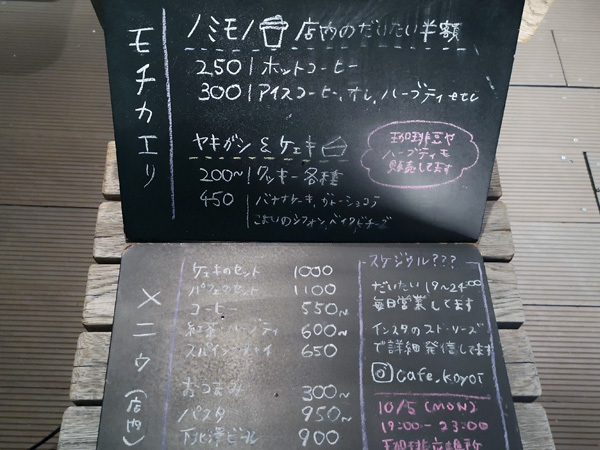 モチカエリ
ノミモノ 店内のだいたい半額
250 ホットコーヒー
300 アイスコーヒー、オレ、ハーブティ etc
ヤキガシ & ケェキ
200~ クッキー各種
450 バナナケーキ、ガトーショコラ
こよいのシフォン、ベイクドチーズ
珈琲豆や
ハーブティモ
販売してます
メニウ(店内)
ケェキのセット 1000
パフェのセット 1100
コーヒー 550~
紅茶・ハーブティ 600~
スパイシーチャイ 650
おつまみ 300~
パスタ 950~
下北澤ビール 900
スケジウル???
だいたい 19~24:00
毎日営業してます
インスタのストーリーズ
で詳細発信してます
cafe.koyoi
10/5 (MON)
19:00 - 23:00
珈琲